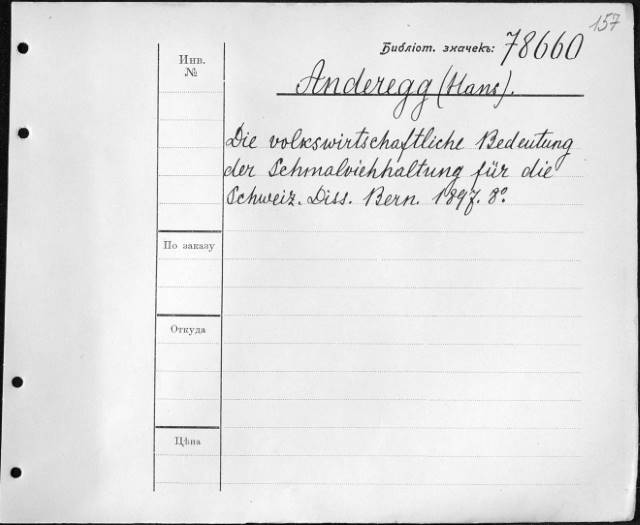 157
Библіот. значекъ: 78660
Инв.
№
Anderegg (Hans).
Die volkswirtschaftliche Bedeutung
der Schmalviehhaltung für die
Schweiz. Diss. Bern. 1897. 8°.
По заказу
Откуда
Цѣна